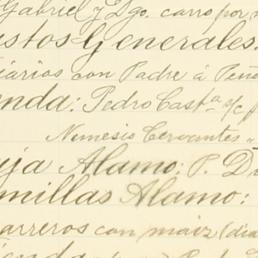 Gabriel y Dgo. carro por
Gastos Generales.
diários con Padre á Peño
ienda: Pedro Castª s/c
Nemesis Cervantes "
uja Alamo: P. D
millas Alamo:
arreros con maiz (dia
ienda